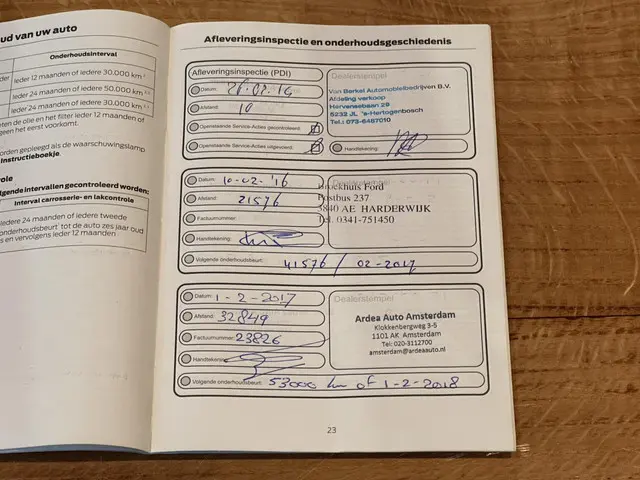 ud van uw auto
Onderhoudsinterval
Ieder 12 maanden of iedere 30.000 km
Ieder 24 maanden of iedere 50.000 km
Ieder 24 maanden of iedere 30.000 km
eten de olie en het filter ieder 12 maanden of
geen het eerst voorkomt.
orden gepleegd als de waarschuwingslamp
Instructieboekje.
role
lgende intervallen gecontroleerd worden:
Interval carrosserie- en lakcontrole
Iedere 24 maanden of iedere tweede
onderhoudsbeurt tot de auto zes jaar oud
is en vervolgens ieder 12 maanden
Afleveringsinspectie en onderhoudsgeschiedenis
Afleveringsinspectie (PDI)
Datum:
Afstand: 10
Openstaande Service-Acties gecontroleerd:
Openstaande Service-Acties uitgevoerd:
Dealerstempel
Van Berkel Automobielbedrijven B.V.
Afdeling verkoop
Hervensebaan 29
5232 JL 's-Hertogenbosch
Tel.: 073-6487010
Handtekening:
Datum: 10-02-'16
Afstand: 21576
Factuurnummer:
Handtekening:
Brockhuis Ford
Postbus 237
3840 AE HARDERWIJK
Tel. 0341-751450
Volgende onderhoudsbeurt: 41576 / 02-2017
Datum: 1-2-2017
Afstand: 32849
Factuurnummer: 23826
Handtekening:
Dealerstempel
Ardea Auto Amsterdam
Klokkenbergweg 3-5
1101 AK Amsterdam
Tel: 020-3112700
amsterdam@ardeaauto.nl
Volgende onderhoudsbeurt: 53000 km of 1-2-2018
23